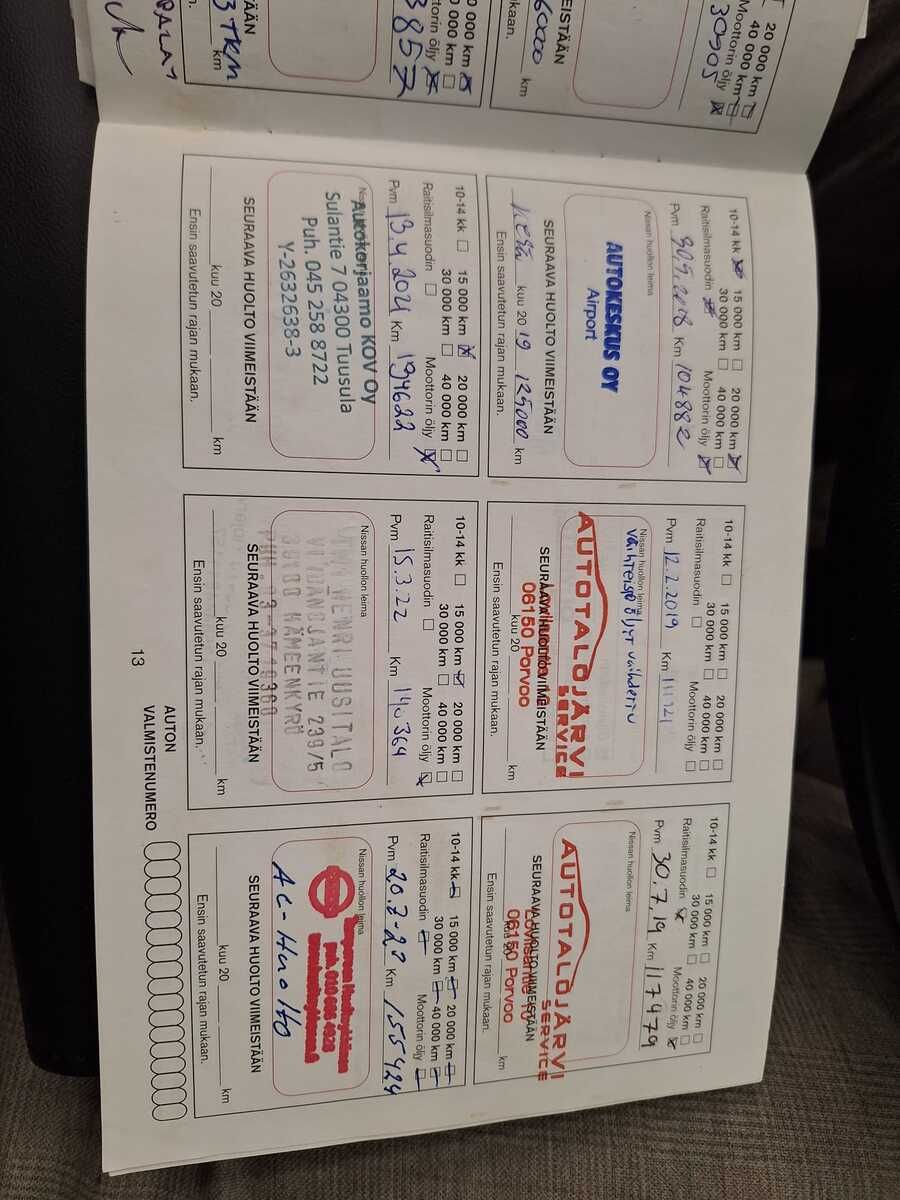 20 000 km
40 000 km
Moottorin öljy
30905
EISTÄÄN
6000 km
mukaan.
0 000 km
0 000 km
rin öljy
3857
TÄÄN
3TKM km
10-14 kk 15 000 km 20 000 km
30 000 km 40 000 km
Raitisilmasuodin Moottorin öljy
Pvm 30.5.2018 Km 104882
Nissan huollon leima
AUTOKESKUS OY
Airport
SEURAAVA HUOLTO VIIMEISTÄÄN
kesä kuu 20 19 125000 km
Ensin saavutetun rajan mukaan.
10-14 kk 15 000 km 20 000 km
30 000 km 40 000 km
Raitisilmasuodin Moottorin öljy
Pvm 12.2.2019 Km 111121
Nissan huollon leima
vaihteistoöljyt vaihdettu
AUTOTALOJÄRVI
SERVICE
06150 Porvoo
SEURAAVA HUOLTO VIIMEISTÄÄN
kuu 20 km
Ensin saavutetun rajan mukaan.
10-14 kk 15 000 km 20 000 km
30 000 km 40 000 km
Raitisilmasuodin Moottorin öljy
Pvm 30.7.19 Km 117479
Nissan huollon leima
AUTOTALOJÄRVI
SERVICE
Loviisantie
06150 Porvoo
SEURAAVA HUOLTO VIIMEISTÄÄN
kuu 20 km
Ensin saavutetun rajan mukaan.
10-14 kk 15 000 km 20 000 km
30 000 km 40 000 km
Raitisilmasuodin Moottorin öljy
Pvm 13.4.2021 Km 134622
Autokorjaamo KOV Oy
Sulantie 7 04300 Tuusula
Puh. 045 258 8722
Y-2632638-3
SEURAAVA HUOLTO VIIMEISTÄÄN
kuu 20 km
Ensin saavutetun rajan mukaan.
10-14 kk 15 000 km 20 000 km
30 000 km 40 000 km
Raitisilmasuodin Moottorin öljy
Pvm 15.3.22 Km 140364
Nissan huollon leima
HENRI UUSITALO
239/5
39100 HÄMEENKYRÖ
SEURAAVA HUOLTO VIIMEISTÄÄN
kuu 20 km
Ensin saavutetun rajan mukaan.
10-14 kk 15 000 km 20 000 km
30 000 km 40 000 km
Raitisilmasuodin Moottorin öljy
Pvm 20.2-23 Km 155424
Nissan huollon leima
AC-Huolto
SEURAAVA HUOLTO VIIMEISTÄÄN
kuu 20 km
Ensin saavutetun rajan mukaan.
13
AUTON
VALMISTENUMERO